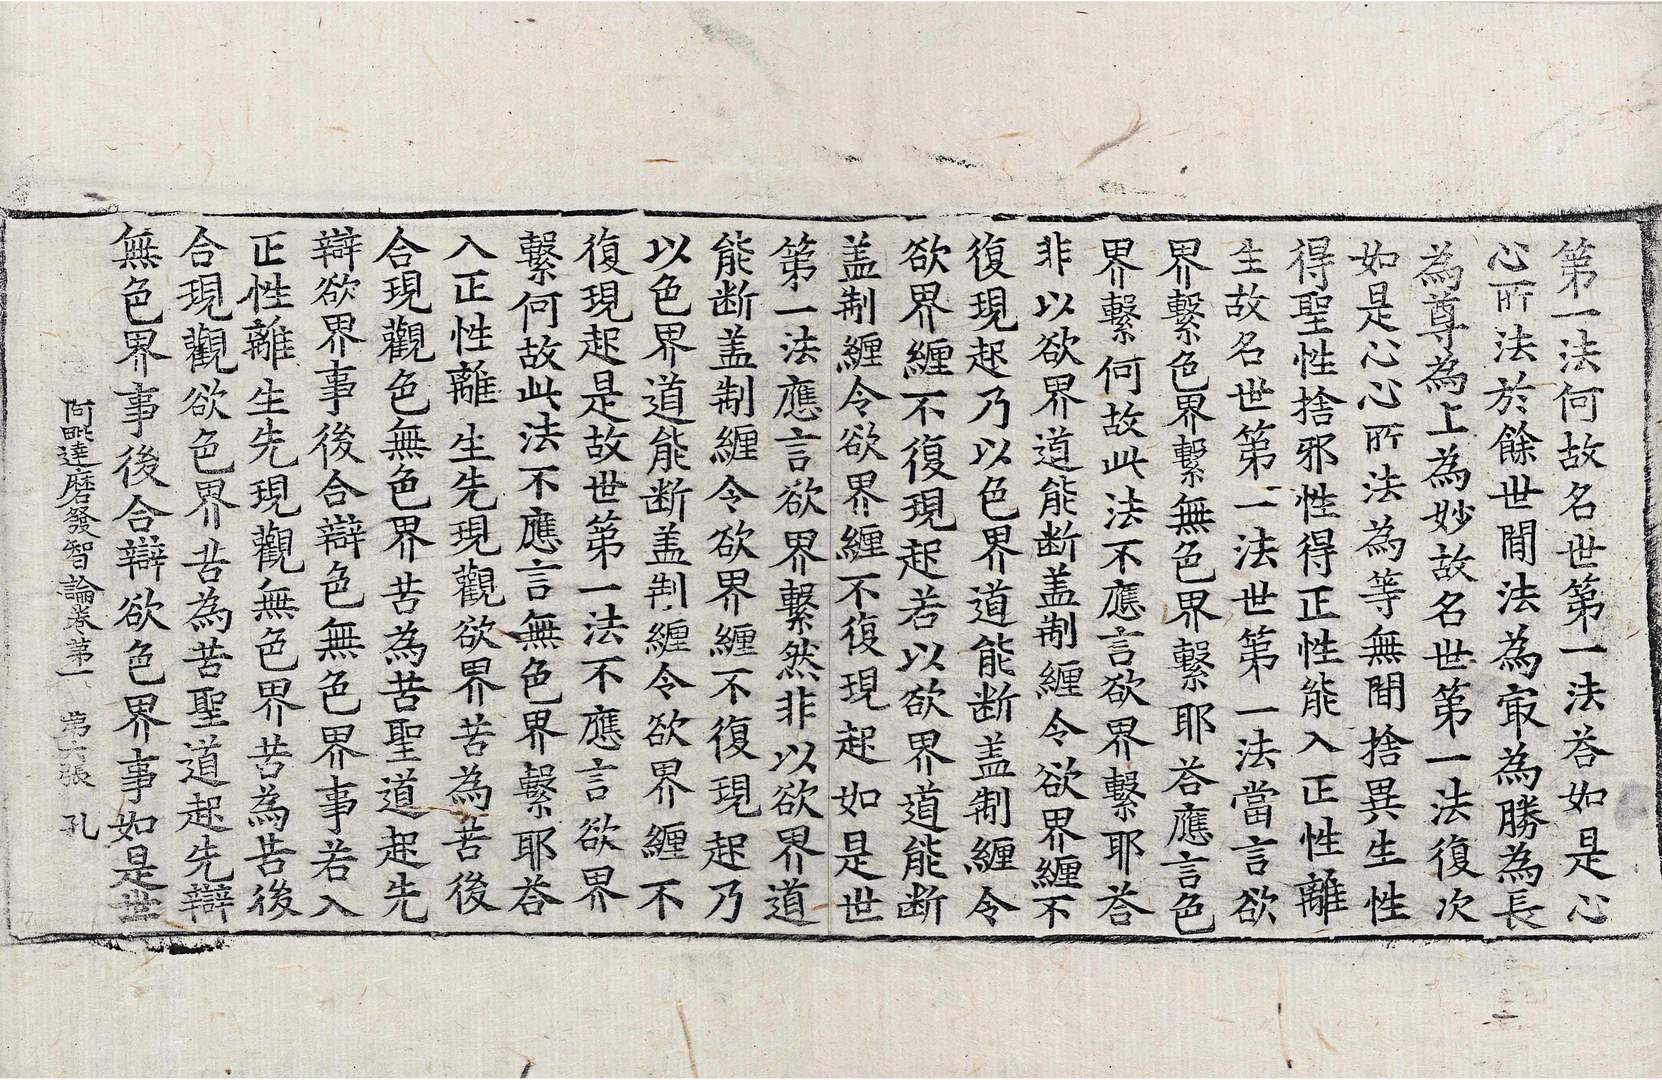 第一法何故名世第一法荅如是心
心所法於餘世間法為㝡為勝為長
為尊為上為妙故名世第一法復次
如是心心所法為等無間捨異生性
得聖性捨邪性得正性能入正性離
生故名世第一法世第一法當言欲
界繫色界繫無色界繫耶荅應言色
界繫何故此法不應言欲界繫耶荅
非以欲界道能断盖制纏令欲界纏不
復現起乃以色界道能断盖制纏令
欲界纏不復現起若以欲界道能断
盖制纏令欲界纏不復現起如是世
第一法應言欲界繫然非以欲界道
能断盖制纏令欲界纏不復現起乃
以色界道能断盖制纏令欲界纏不
復現起是故世第一法不應言欲界
繫何故此法不應言無色界繫耶荅
入正性離生先現觀欲界苦為苦後
合現觀色無色界苦為苦聖道起先
辯欲界事後合辯色無色界事若入
正性離生先現觀無色界苦為苦後
合現觀欲色界苦為苦聖道起先辯
無色界事後合辯欲色界事如是世
阿毗達磨發智論卷第一 第六張 孔